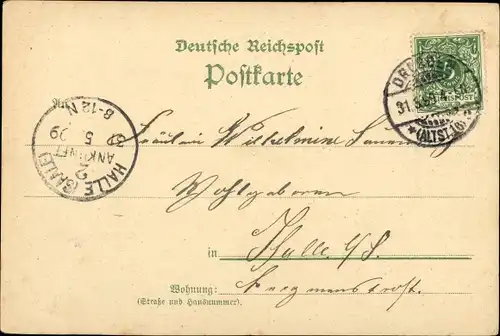 Deutsche Reichspost
Postkarte
DRESDEN
31.5.99.4-5N
*(ALTST.16)
HALLE (SAALE)
ANKUNFT
8-12 N
Fräulein Wilhelmine
Wohlgeboren
in Halle a/S.
Wohnung:
(Straße und Hausnummer).